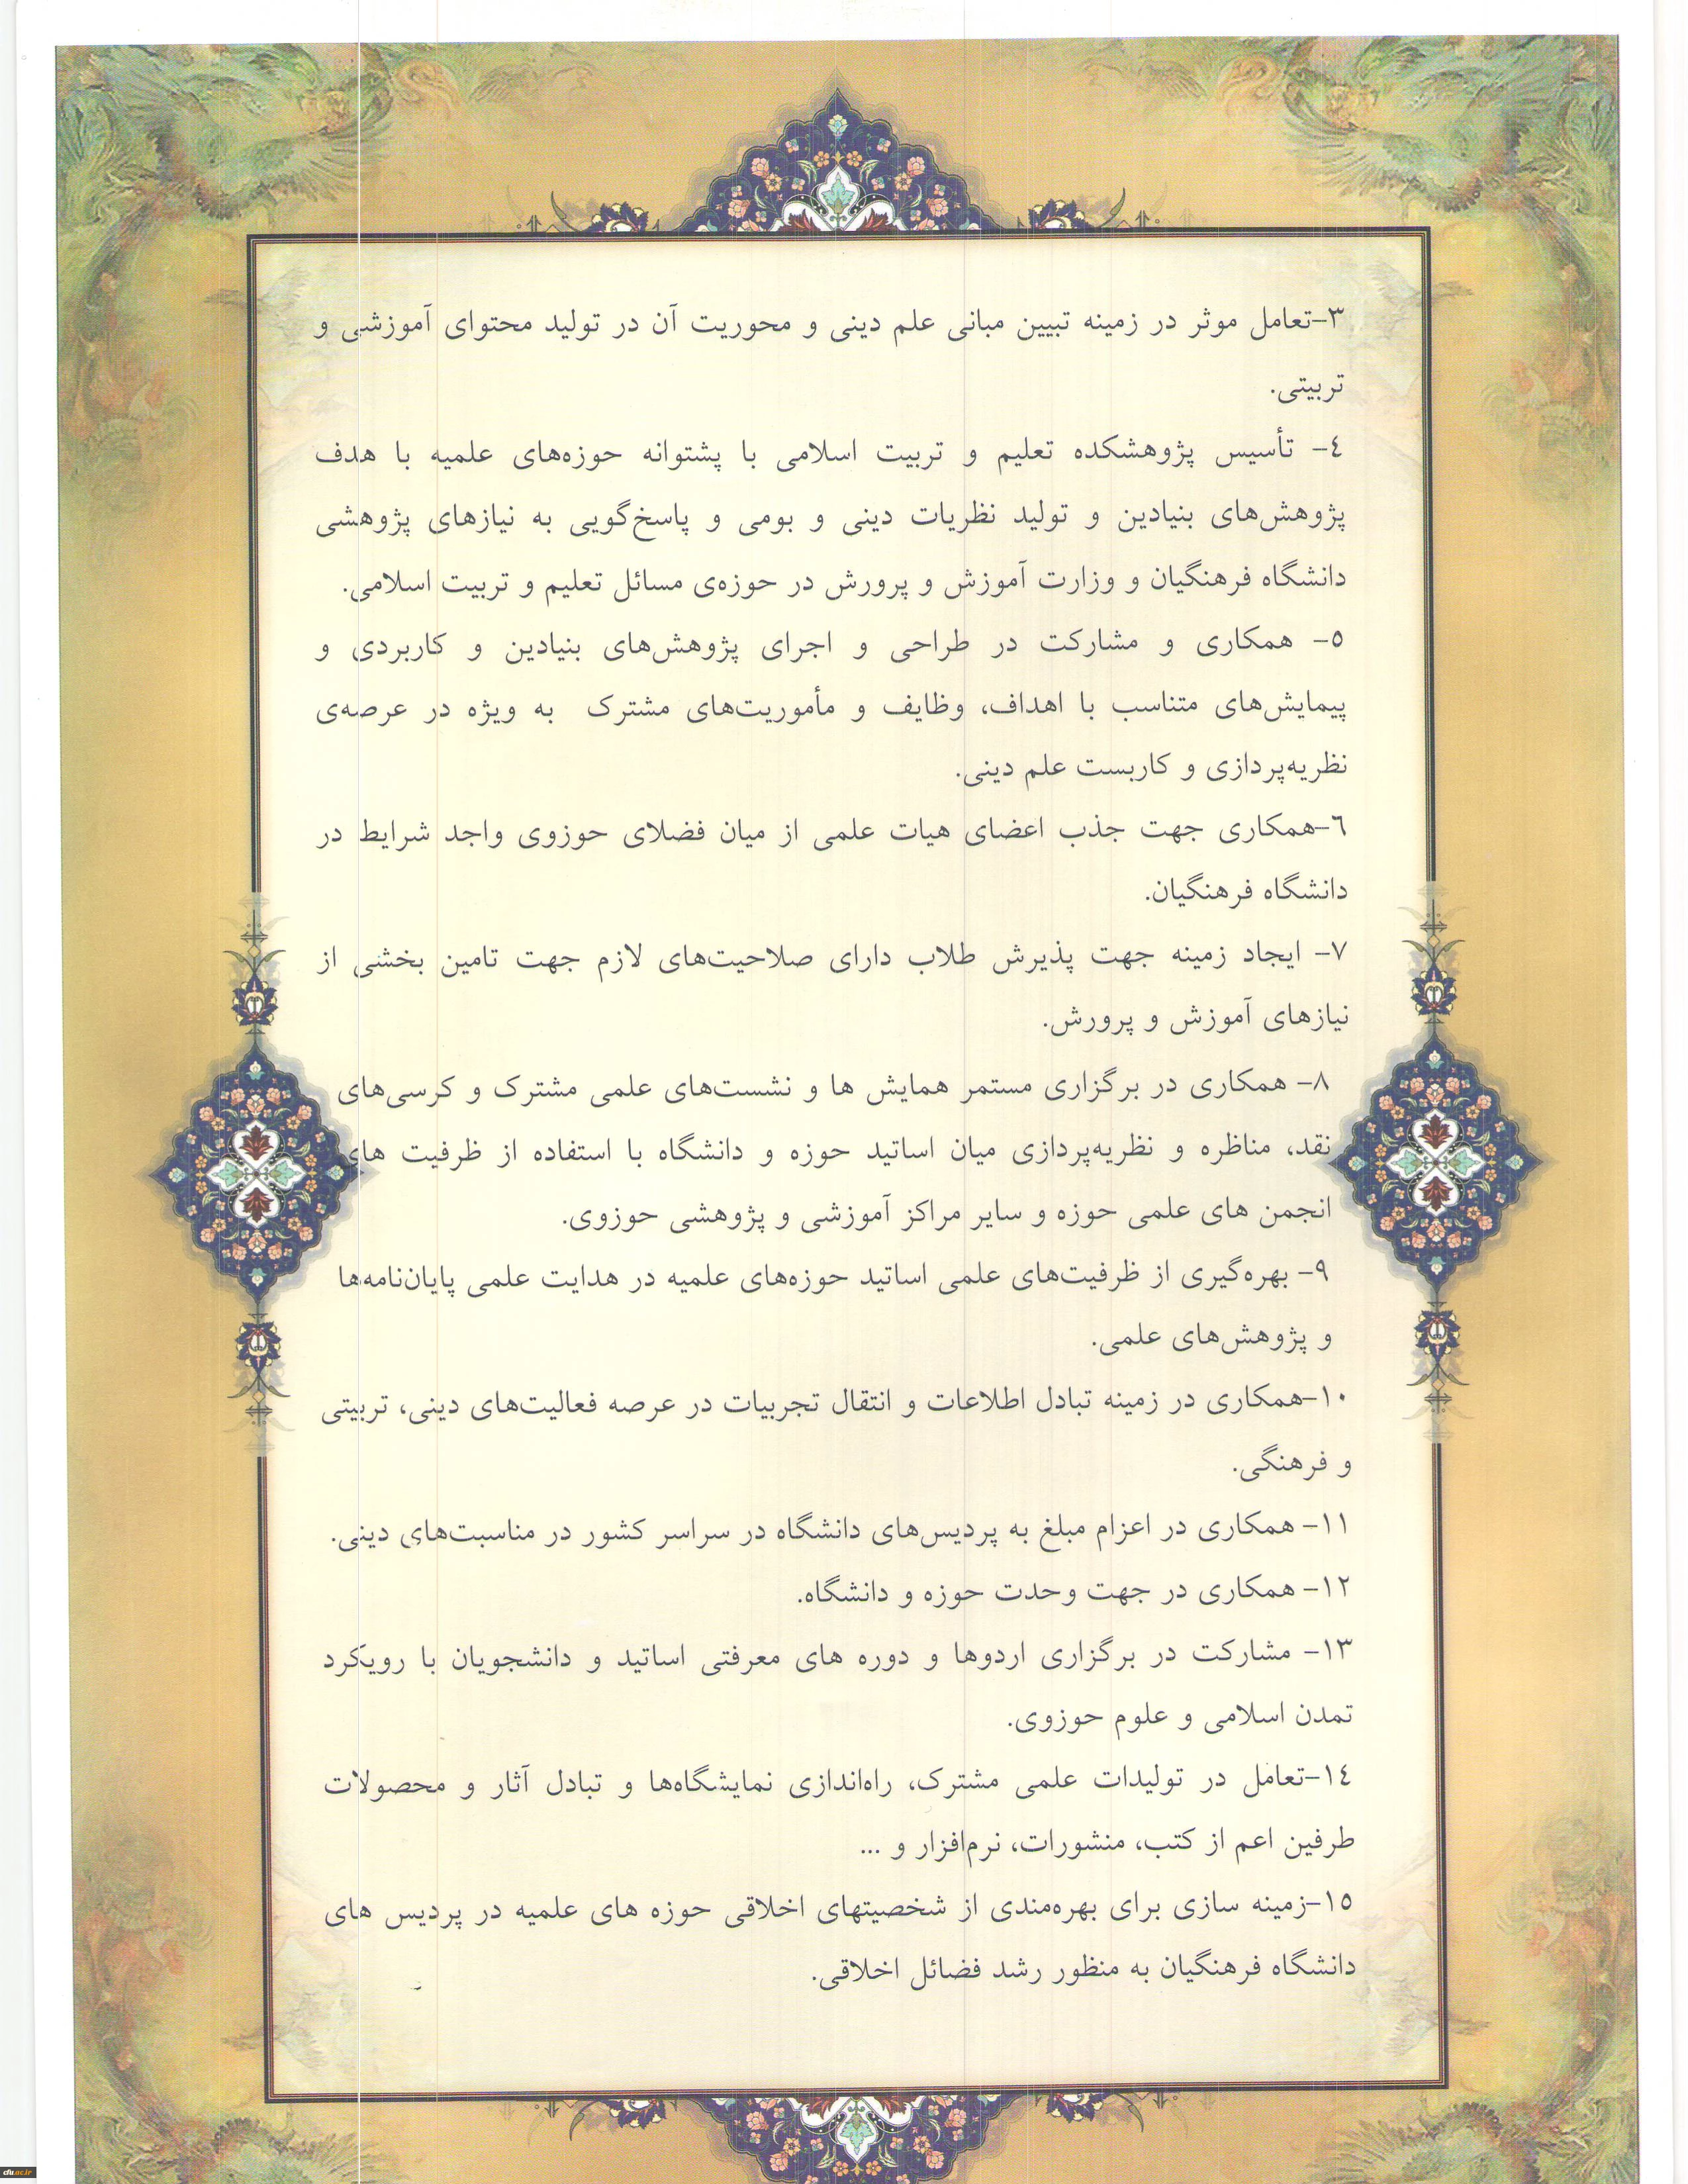 ۳-تعامل موثر در زمینه تبیین مبانی علم دینی و محوریت آن در تولید محتوای آموزشی و
تربیتی.
٤- تأسیس پژوهشکده تعلیم و تربیت اسلامی با پشتوانه حوزه‌های علمیه با هدف
پژوهش‌های بنیادین و تولید نظریات دینی و بومی و پاسخ‌گویی به نیازهای پژوهشی
دانشگاه فرهنگیان و وزارت آموزش و پرورش در حوزه‌ی مسائل تعلیم و تربیت اسلامی.
٥- همکاری و مشارکت در طراحی و اجرای پژوهش‌های بنیادین و کاربردی و
پیمایش‌های متناسب با اهداف، وظایف و مأموریت‌های مشترک به ویژه در عرصه‌ی
نظریه‌پردازی و کاربست علم دینی.
٦-همکاری جهت جذب اعضای هیات علمی از میان فضلای حوزوی واجد شرایط در
دانشگاه فرهنگیان.
۷- ایجاد زمینه جهت پذیرش طلاب دارای صلاحیت‌های لازم جهت تامین بخشی از
نیازهای آموزش و پرورش.
۸- همکاری در برگزاری مستمر همایش ها و نشست‌های علمی مشترک و کرسی‌های
نقد، مناظره و نظریه‌پردازی میان اساتید حوزه و دانشگاه با استفاده از ظرفیت های
انجمن های علمی حوزه و سایر مراکز آموزشی و پژوهشی حوزوی.
۹- بهره‌گیری از ظرفیت‌های علمی اساتید حوزه‌های علمیه در هدایت علمی پایان‌نامه‌ها
و پژوهش‌های علمی.
۱۰-همکاری در زمینه تبادل اطلاعات و انتقال تجربیات در عرصه فعالیت‌های دینی، تربیتی
و فرهنگی.
۱۱- همکاری در اعزام مبلغ به پردیس‌های دانشگاه در سراسر کشور در مناسبت‌های دینی.
۱۲- همکاری در جهت وحدت حوزه و دانشگاه.
۱۳- مشارکت در برگزاری اردوها و دوره های معرفتی اساتید و دانشجویان با رویکرد
تمدن اسلامی و علوم حوزوی.
۱٤-تعامل در تولیدات علمی مشترک، راه‌اندازی نمایشگاه‌ها و تبادل آثار و محصولات
طرفین اعم از کتب، منشورات، نرم‌افزار و ...
۱٥-زمینه سازی برای بهره‌مندی از شخصیتهای اخلاقی حوزه های علمیه در پردیس های
دانشگاه فرهنگیان به منظور رشد فضائل اخلاقی.
cfu.ac.ir